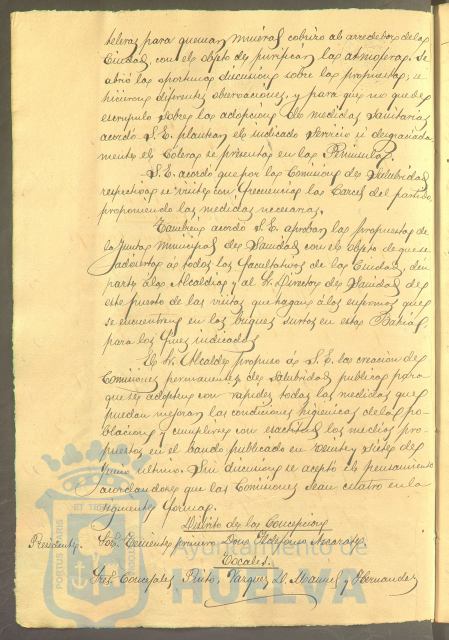 teleras para quemar mineral cobrizo al arrededor de la
Ciudad, con el objeto de purificar la atmosfera. Se
abrió la oportuna discusion sobre la propuesta, se
hicieron diferentes observaciones, y para que no quede
escrupulo sobre la adopcion de medidas sanitarias
acordó S.E. plantear el indicado servicio si desgraciada
mente el Colera se presenta en la Peninsula.
S.E. acordó que por la Comision de Salubridad
respectiva se visite con frecuencia la Carcel del partido
proponiendo las medidas necesarias.
Tambien acordó S.E. aprobar la propuesta de
la Junta Municipal de Sanidad con el objeto de que se
advierta á todos los facultativos de la Ciudad, den
parte á la Alcaldia y al Sr. Director de Sanidad de
este puerto de las visitas que hagan á los enfermos que
se encuentren en los buques surtos en esta Bahia,
para los fines indicados
El Sr. Alcalde propuso á S.E. la creacion de
Comisiones permanentes de Salubridad publica para
que se adopten con rapidez todas las medidas que
puedan mejorar las condiciones higienicas de la po-
blacion y cumplirse con exactitud los medios pro-
puestos en el bando publicado en veinte y siete de
Junio ultimo. Sin discusion se aceptó el pensamiento
acordandose que las Comisiones sean cuatro en la
siguiente forma.
Distrito de la Concepcion
Presidente. Sor. Teniente primero Don Ildefonso
Vocales.
Sres. Concejales Prieto, Vazquez D. Manuel y Hernandez
Ayuntamiento de
HUELVA